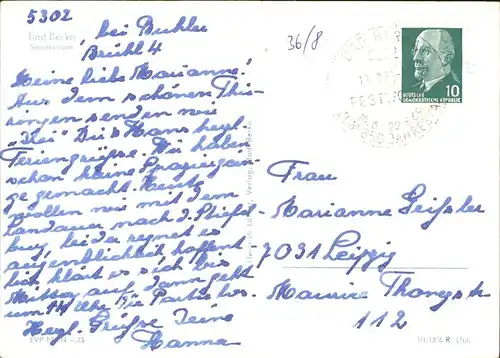 5302
bei Buhler
Brühl 4
Bad Berka
Sanatorium
36/8
Meine liebe Marianne!
Aus dem schönen Thü-
ringen senden wir
"Drei" Dir & Hans herzl.
Feriengrüße. Wir haben
schon kleine Spaziergän-
ge gemacht. Heute
wollen wir mit dem
Landauer nach d.
burg, leider regnet es
augenblicklich hoffent
lich klärt es sich bis
Mittag auf dann geht
um die Partie los.
Herzl. Grüße Deine
Hanna
10
DEUTSCHE
DEMOKRATISCHE REPUBLIK
BAD BERKA
FEST
850 JAHRE
Frau
Marianne Geißler
7031 Leipzig
Maurice Thorez str
112
EVP MDN -,25
III/18/6 R 1/66